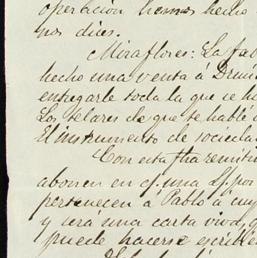 operación hemos hecho
nos dices.
Miraflores: La fab
hecho una venta á
entregarle toda la que se ha
Los telares de que te hablé
El instrumento de socieda
Con esta fha remiti
abonen en
pertenecen á Pablo á
y será una carta viva,
puede hacerse